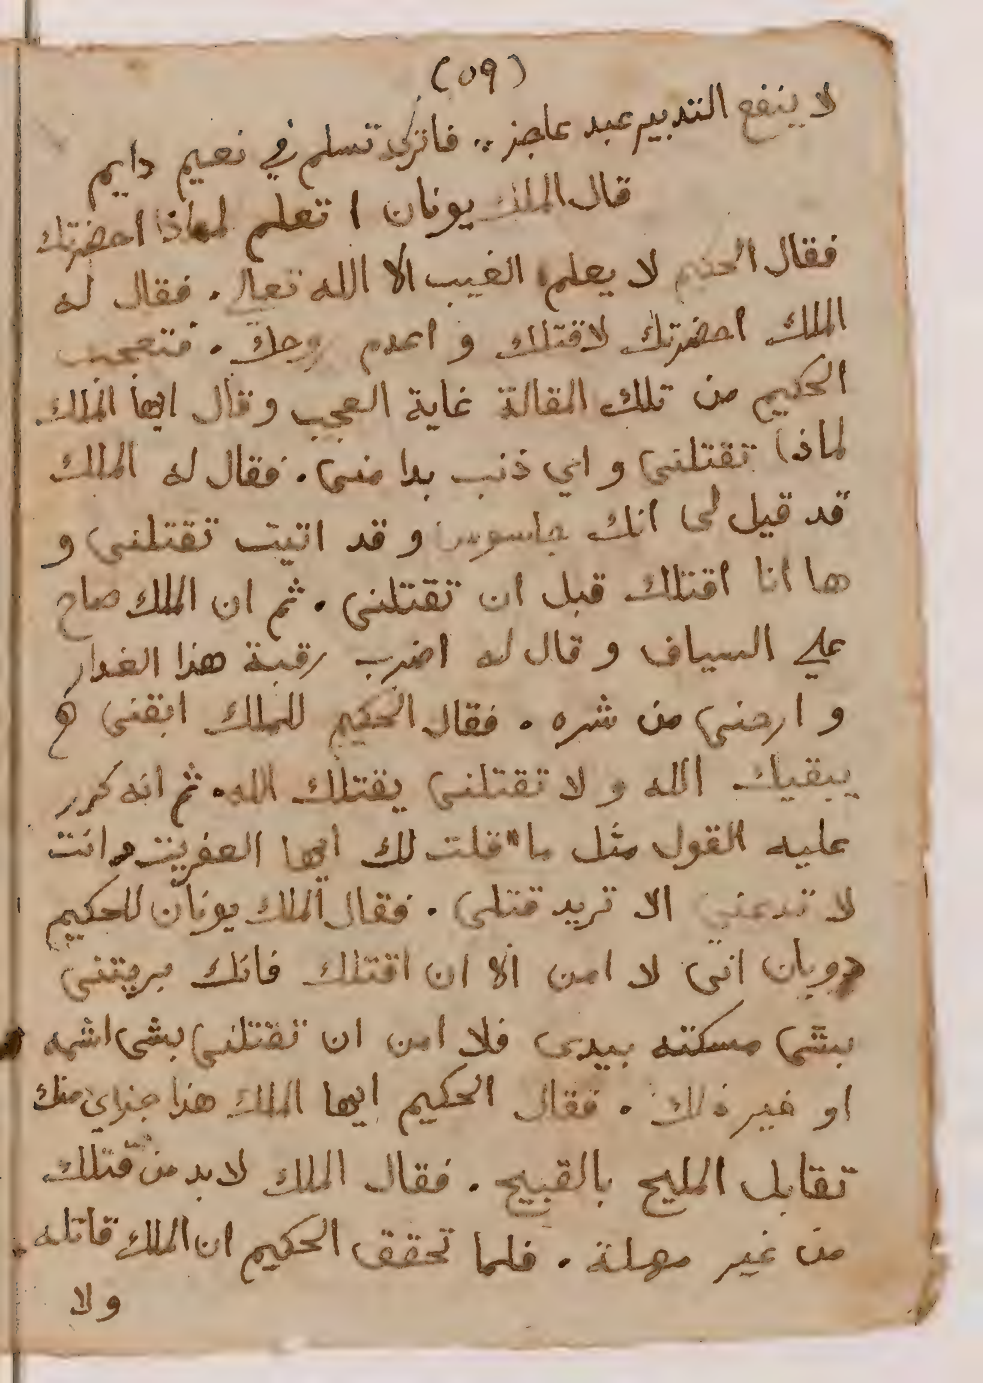 (٥٩)
لا ينفع التدبير عبد عاجز .. فاتركه تسلم في نعيم دايم
قال الملك يونان ا تعلم لماذا احضرتك
فقال الحكيم لا يعلم الغيب الا الله تعالى . فقال له
الملك احضرتك لاقتلك و اعدم روحك . فتعجب
الحكيم من تلك المقالة غاية العجب و قال ايها الملك
لماذا تقتلني و اي ذنب بدا مني . فقال له الملك
قد قيل لي انك جاسوس و قد اتيت تقتلني و
ها انا اقتلك قبل ان تقتلني . ثم ان الملك صاح
علي السياف و قال له اضرب رقبة هذا الغدار
و ارحني من شره . فقال الحكيم للملك ابقني
يبقيك الله و لا تقتلني يقتلك الله . ثم انه كرر
عليه القول مثل ما قلت لك ايها العفريت وانت
لا تدعني الا تريد قتلي . فقال الملك يونان للحكيم
رويان اني لا امن الا ان اقتلك فانك بريتني
بشي مسكته بيدي فلا امن ان تقتلني بشي اشمه
او غير ذلك . فقال الحكيم ايها الملك هذا جزاي منك
تقابل المليح بالقبيح . فقال الملك لابد من قتلك
من غير مهلة . فلما تحقق الحكيم ان الملك قاتله .
ولا